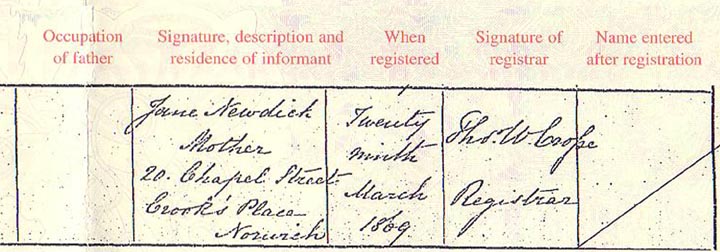 Occupation of father
Signature, description and residence of informant
When registered
Signature of registrar
Name entered after registration
Jane Newdick
Mother
20. Chapel Street
Crook's Place
Norwich
Twenty
ninth
March
1869
Thos. W. Crosse
Registrar